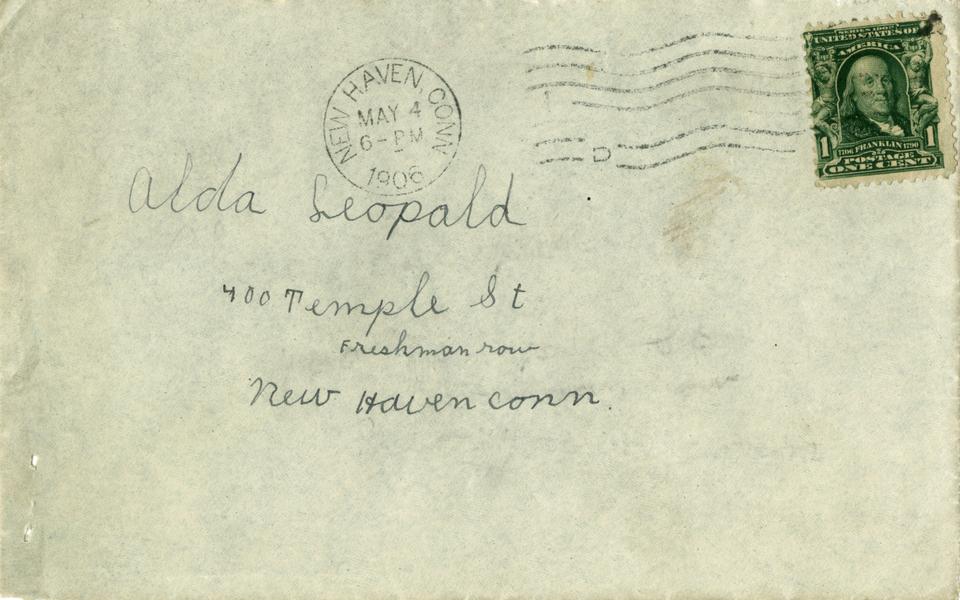 NEW HAVEN, CONN
MAY 4
6-PM
1906
D
SERIES 1902
UNITED STATES OF
AMERICA
1 1
1706 FRANKLIN 1790
POSTAGE
ONE CENT
Alda Leopald
400 Temple St
Freshman row
New Haven conn.